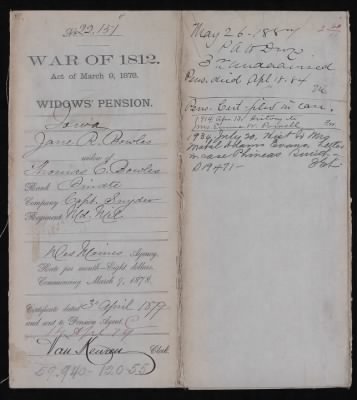 No 22.151
WAR OF 1812.
Act of March 9, 1878.
WIDOWS' PENSION.
Iowa
Jane R. Bowles
widow of
Thomas C. Bowles
Rank Private
Company Capt. Snyder
Regiment Md. Mil.
Des Moines Agency.
Rate per month—Eight dollars.
Commencing March 9, 1878.
Certificate dated 3d April 1879
and sent to Pension Agent
14 Apl 79
Van Keuren Clerk.
59.940-120-55
May 26-1884
3d unclaimed
Pens. died Apl 18.84
Pens. Cert. filed in case.
1914 Apr 13. History to
Mrs.
1934, July 20, Hist to Mrs
Mabel Adams Evans,
in case Phineas